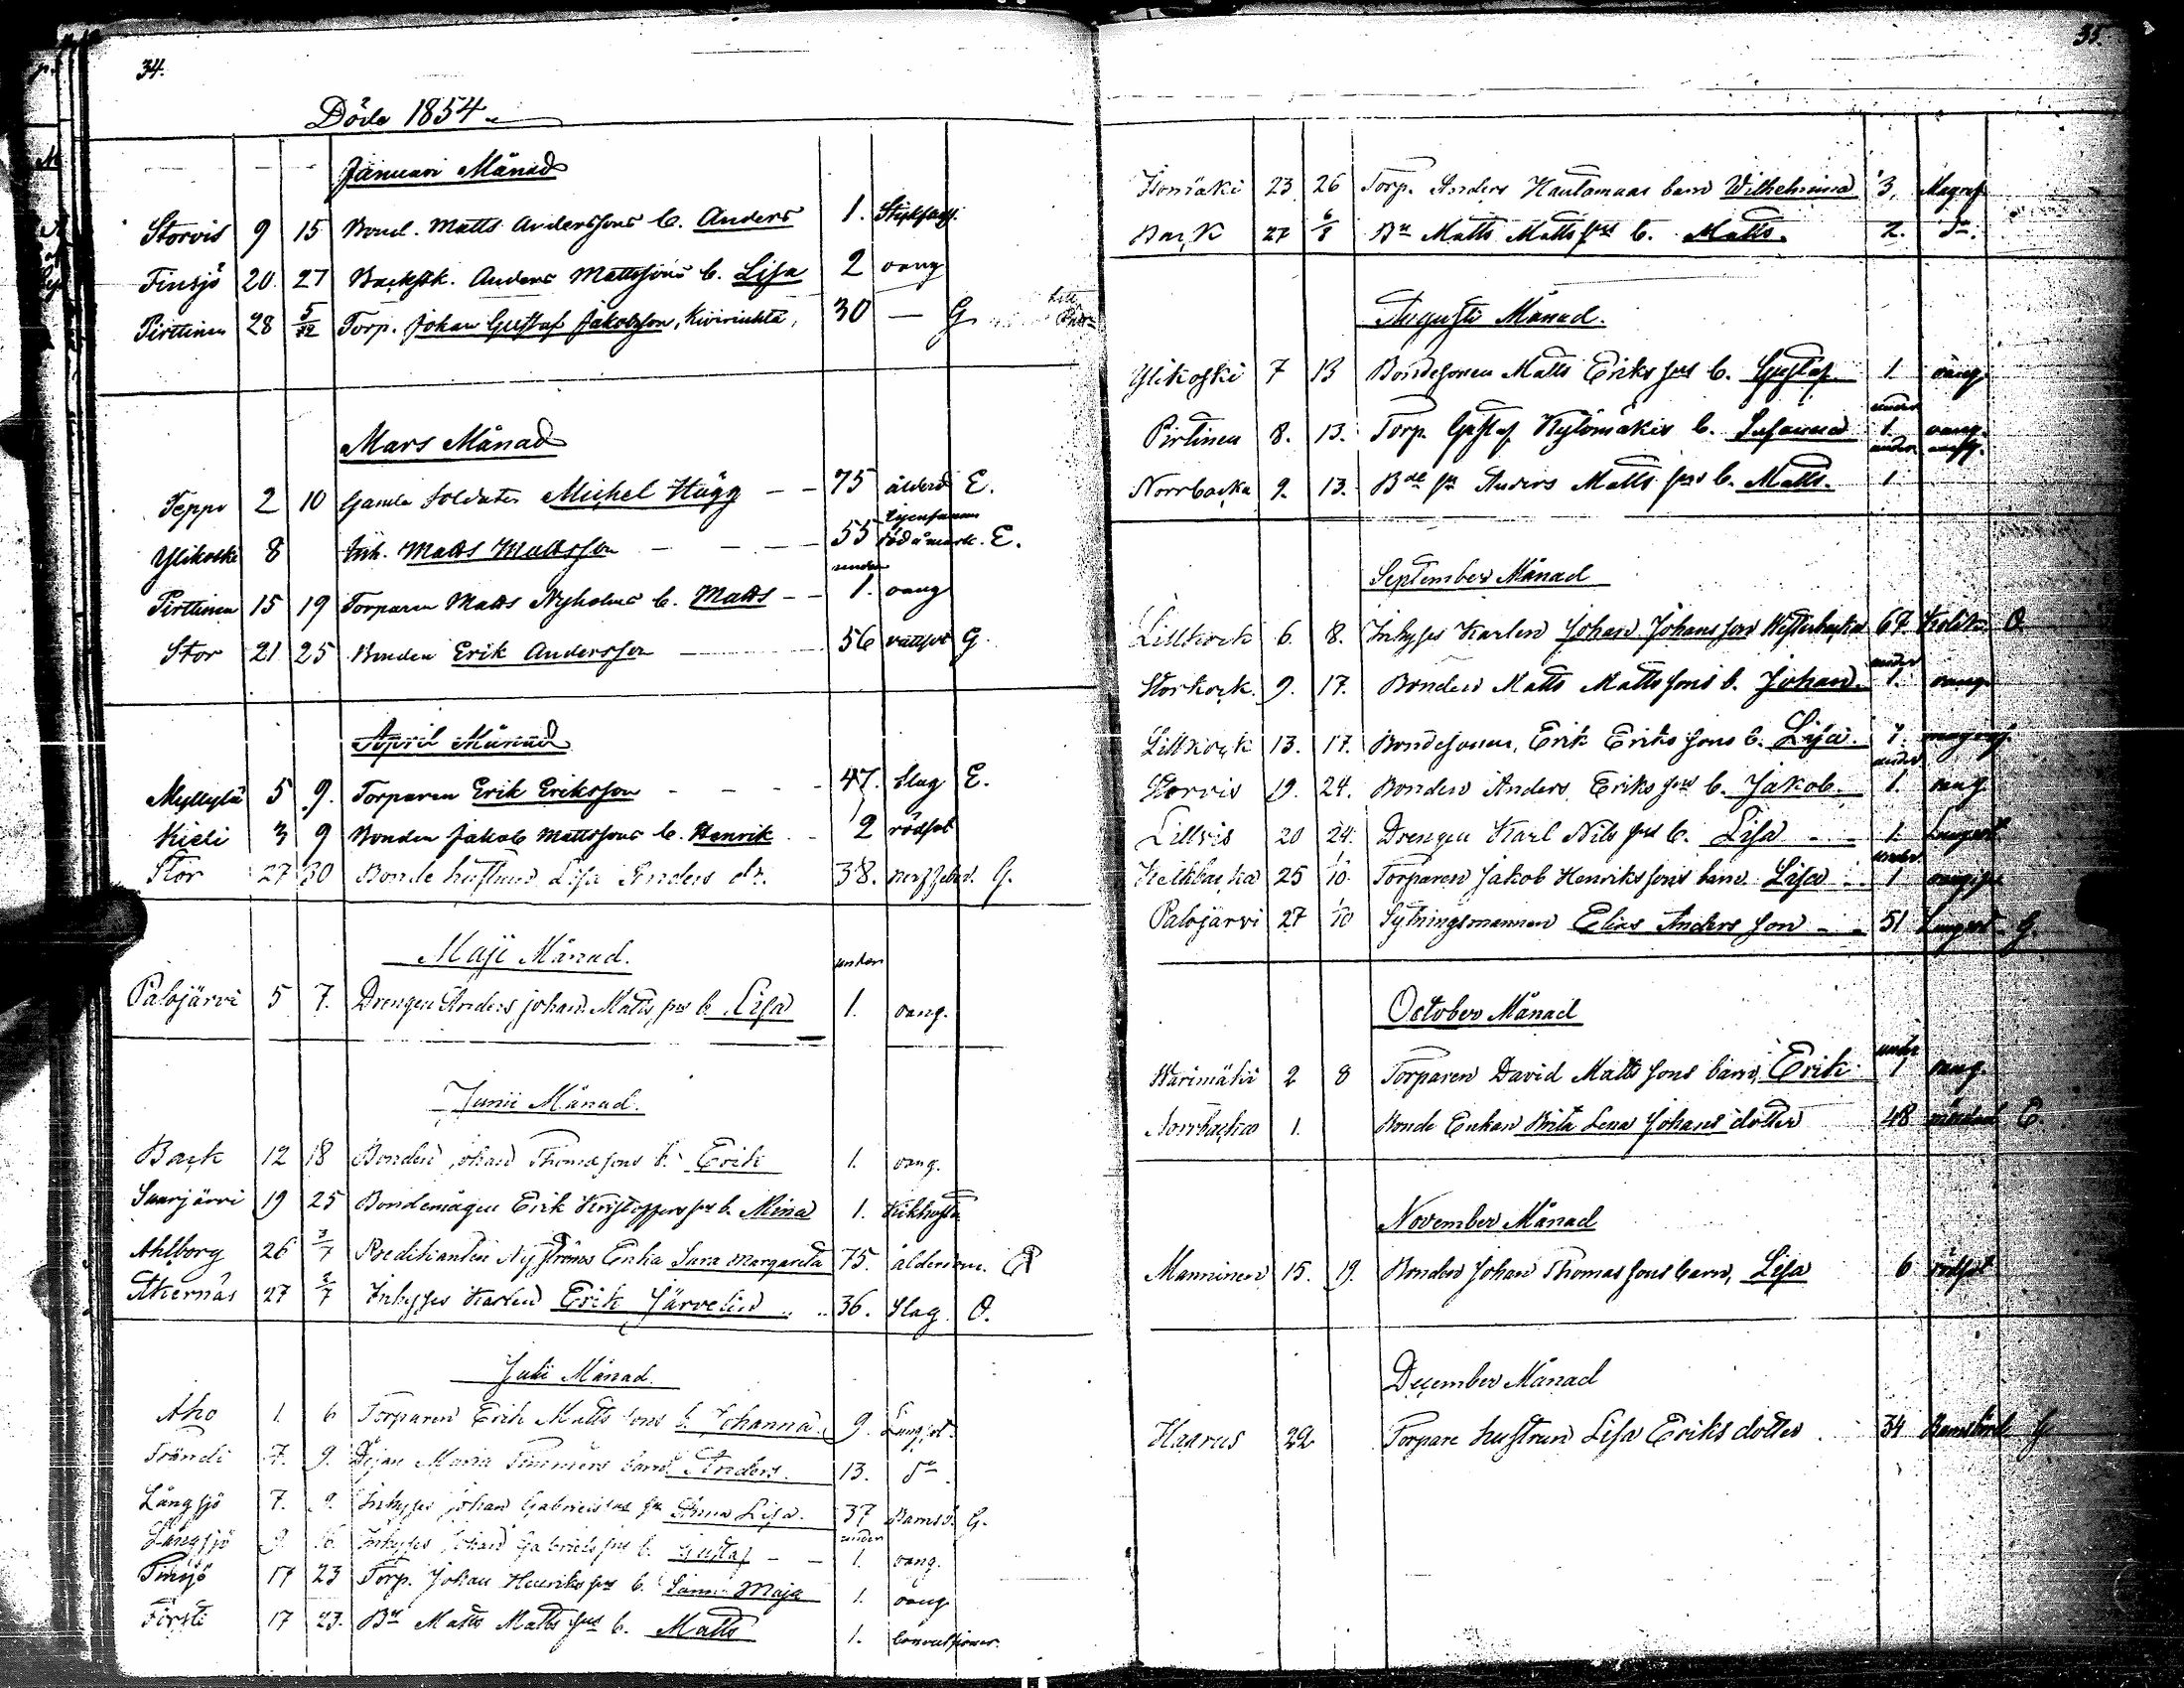 34.
Döde 1854
Januari Månad
Storvis 9 15 Bond. Matts Anderssons b. Anders 1.
Finsjö 20 27 Backstk. Anders Mattssons b. Lisa 2 oang
Pirttinen 28 5/2 Torp. Johan Gustaf Jakobsson, 30 — G
Mars Månad
Seppo 2 10 Gamla Soldaten Michel Hägg — — 75 ålderd E.
Ylikoski 8 Inh. Matts Mattsson — — — 55 död å mark. E.
Pirttinen 15 19 Torparen Matts Nyholms b. Matts — — under 1. oang
Stor 21 25 Bonden Erik Andersson 56 vattsot G.
April Månad
Myllylä 5 9. Torparen Erik Eriksson - - - - 47. Slag E.
Kieli 3 9 Bonden Jakob Mattssons b. Henrik - 2 rödsot
Stor 27 30 Bonde hustrun Lisa Anders dr. 38. G.
Maji Månad.
Palojärvi 5 7. Drengen Anders Johan Matts sns b. Lisa under 1. oang.
Junii Månad.
Back 12 18 Bonden Johan Thomassons b. Erik 1. oang.
Saarjärvi 19 25 Bondemågen Erik Kristoffers sns b. Mina 1. Kikhosta
Ahlborg 26 3/7 Nyströms Enka Sara Margareta 75. ålderdom.
Åkernäs 27 2/7 Inhyses Karlen Erik Järvelin 36. Slag O.
Juli Månad.
Aho 1. 6 Torparen Erik Matts sons b. Johanna 9. Lungsot.
Trändi 7. 9. Pigan Maria barn Anders. 13. do.
Långsjö 7. 9. Inhyses Johan Gabrielssons Anna Lisa. 37 Barnsb. G.
Långsjö 9. 16. Inhyses Johan Gabriels sns b. Gustaf — — under 1. oang.
Finsjö 17 23 Torp. Johan Henriks sns b. Maja 1. oang
Försti 17 23. Bn Matts Matts sns b. Matts 1. Convulsioner.
35.
Isomäki 23 26 Torp. Anders Hautamaas barn Wilhelmina 3.
Back 27 6/8 Bn Matts Matts sns b. Matts. 2. do.
Augusti Månad.
Ylikoski 7 13 Bondesonen Matts Eriks sns b. Gustaf 1. oang.
Pirtinen 8. 13. Torp. Gustaf Kylämäkis b. Susanna under 1. oang.
Norrbacka 9. 13. Bde sn Anders Matts sns b. Matts. under 1
September Månad
Lillkock 6. 8. Inhyses Karlen Johan Johans son 67. Kolik O
Storkock. 9. 17. Bonden Matts Matts sons b. Johan. under 1. oang.
Lillkock 13. 17. Bondesonen, Erik Eriks sons b. Lisa.
Storvis 19. 24. Bonden Anders Eriks sns b. Jakob. under 1. oang.
Lillvis 20 24. Drengen Karl Nils sns b. Lisa — 1. Lungsot
25 1/10. Torparen Jakob Henriks sons barn Lisa under 1
Palojärvi 27 1/10 Sytningsmannen Elias Anders son — — 51 Lungsot G.
October Månad
Harimäki 2 8 Torparen David Matts sons barn, Erik under 1 oang.
Norrbacka 1. Bonde Enkan Brita Lena Johans dotter 48 E.
November Månad
Manninen 15. 19. Bonden Johan Thomas sons barn, Lisa 6 rödsot
December Månad
Haarus 22 Torpare hustrun Lisa Eriks dotter 34 Barnsbörd G